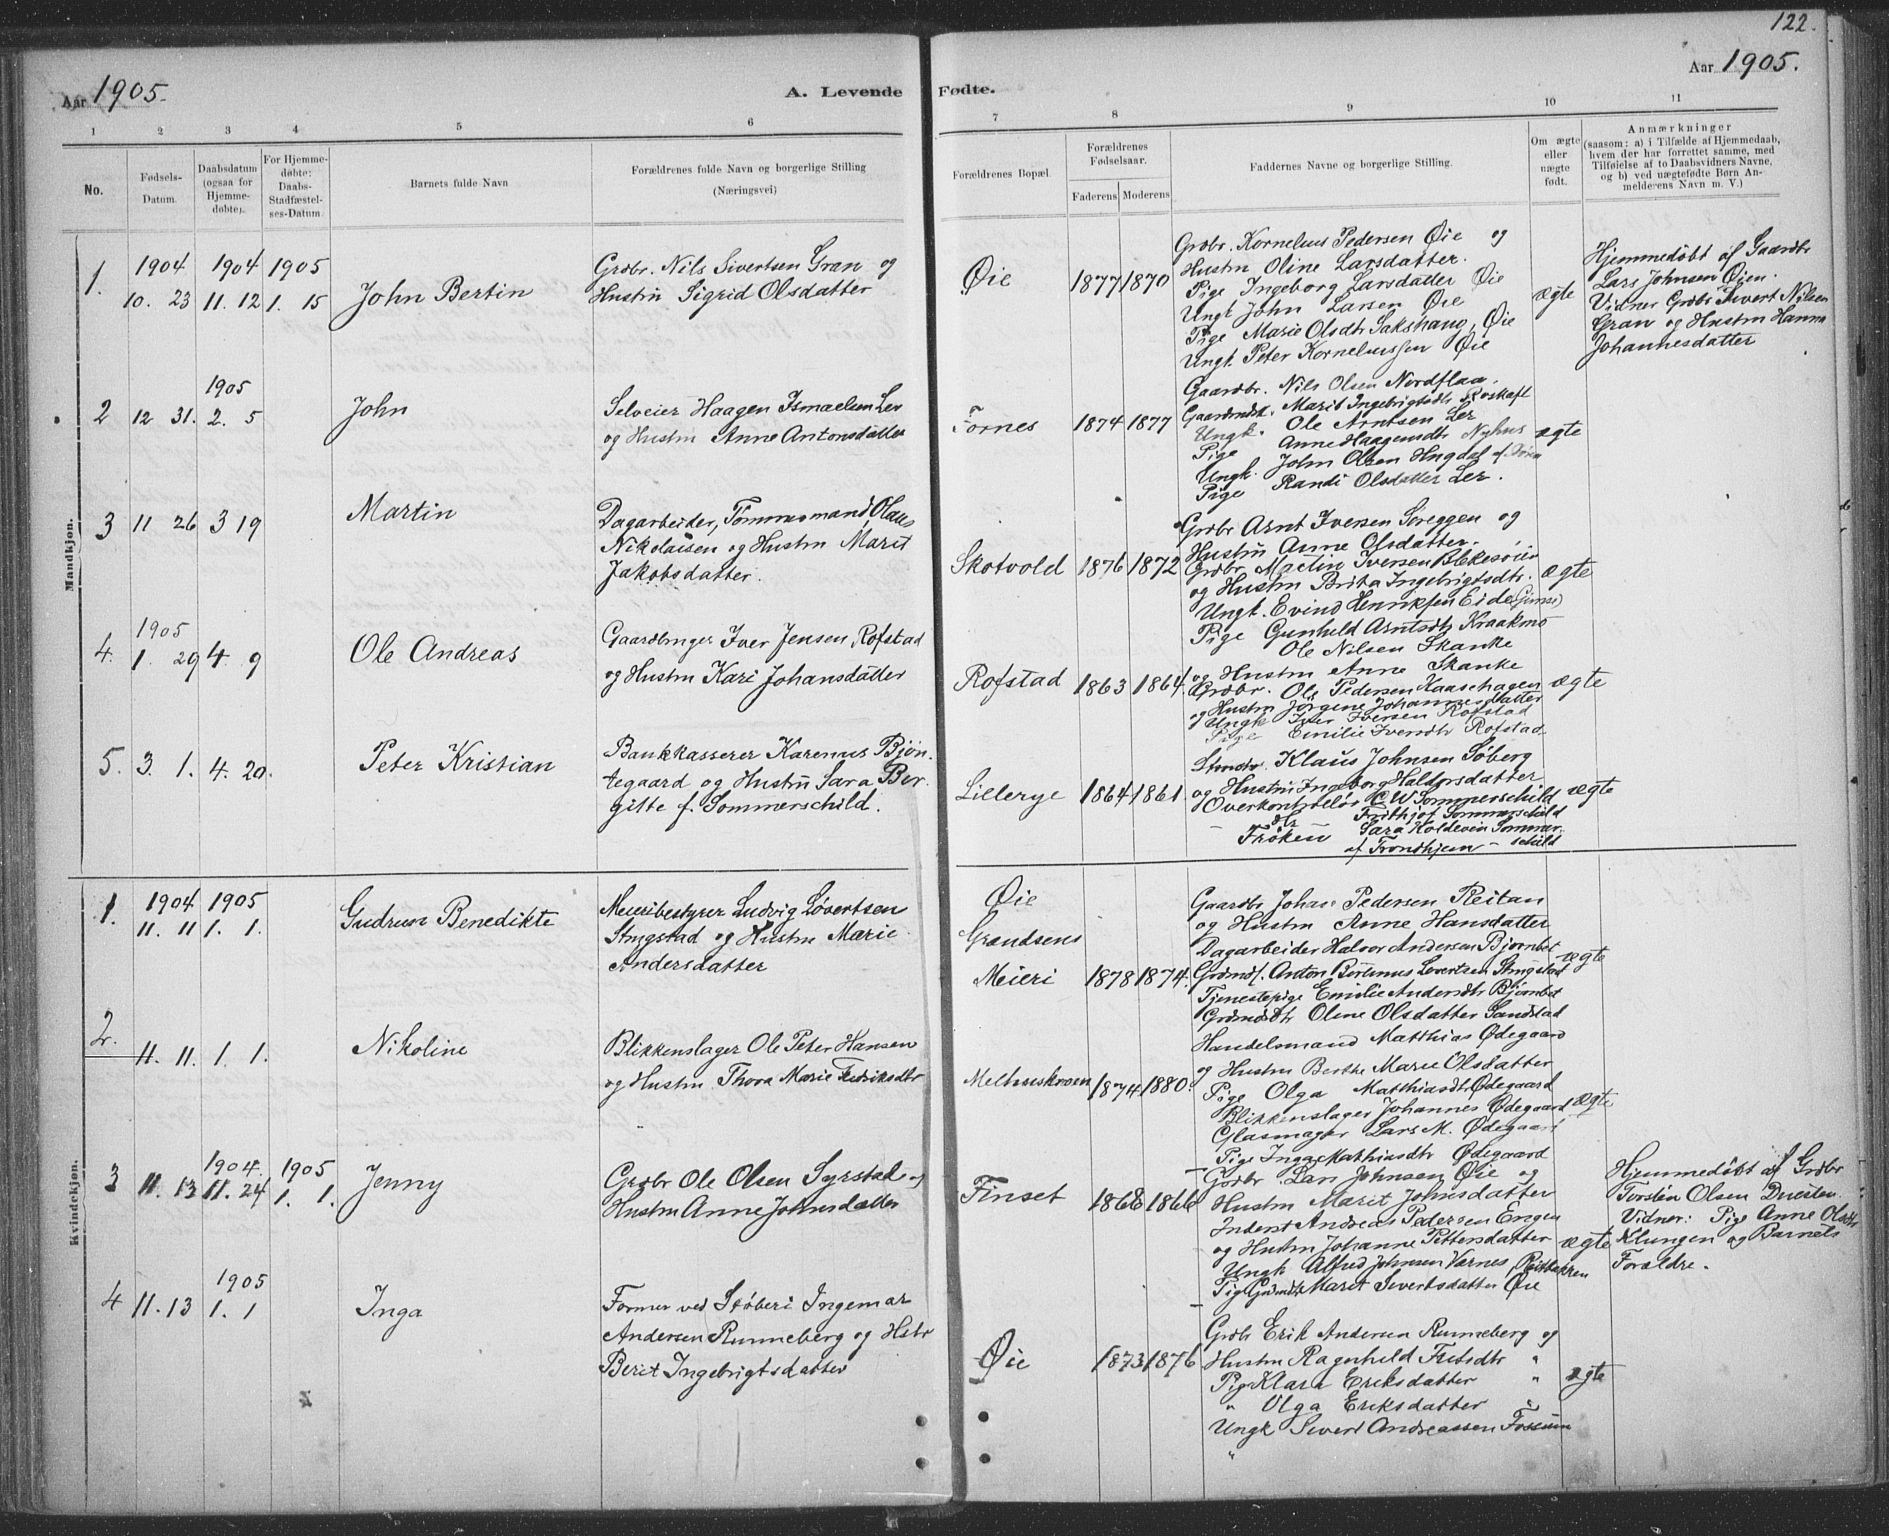 122.
Aar 1905.
A. Levende Fødte.
Aar 1905.
1 2 3 4 5 6 7 8 9 10 11
No.
Fødsels-
Datum.
Daabsdatum
(ogsaa for
Hjemme-
døbte).
For Hjemme-
døbte:
Daabs-
Stadfæstel-
ses-Datum.
Barnets fulde Navn
Forældrenes fulde Navn og borgerlige Stilling
(Næringsvei)
Forældrenes Bopæl.
Forældrenes
Fødselsaar.
Faderens Moderens
Faddernes Navne og borgerlige Stilling.
Om ægte
eller
nægte
født.
Anmærkninger
(saasom: a) i Tilfælde af Hjemmedaab,
hvem der har forrettet samme, med
Tilføielse af to Daabsvidners Navne,
og b) ved uægtefødte Børn An-
melderens Navn m. V.)
Mandkjøn.
1.
1904
10. 23
1904
11. 12
1905
1. 15
John Bertin
Grdbr. Nils Sivertsen Gran og
Hustru Sigrid Olsdatter
Øie
1877 1870
Grdbr. Kornelius Pedersen Øie og
Hustru Oline Larsdatter.
Pige Ingeborg Larsdatter Øie
Ungk. John Larsen Øie
Pige Marie Olsdtr Sakshaug, Øie
Ungk. Peter Korneliussen Øie
ægte
Hjemmedøbt af Gaardbr
Lars Johnsen Øien.
Vidner Grdbr Sivert Nilsen
Gran og Hustru Hanna
Johannesdatter
2
12 31.
1905
2. 5
John
Selveier Haagen Ismaelsen Ler
og Hustru Anne Antonsdatter
Fornes
1874 1877
Gaardbr. Nils Olsen Nordflaa.
Gaardmdst. Marit Ingebrigtsdtr Roskaft
Ungk. Ole Arntsen Ler
Pige Anne Haagensdtr Nyhus
Ungk. John Olsen Hugdal af
Pige Randi Olsdatter Ler.
ægte
3
11 26
3 19
Martin
Dagarbeider, Tømmermand, Olaus
Nikolaisen og Hustru Marit
Jakobsdatter.
Skotvold
1876 1872
Grdbr Arnt Iversen Søreggen og
Hustru Anne Olsdatter.
Grdbr. Martin Iversen Blekesøien
og Hustru Brita Ingebrigtsdtr.
Ungk. Evind Henriksen Eide (Gimse)
Pige Gunhild Arntsdtr Kraakmo
ægte
4.
1905
1. 29
4. 9
Ole Andreas
Gaardbruger Iver Jensen Rofstad
og Hustru Kari Johansdatter
Rofstad
1863 1864.
Ole Nilsen Skanke
og Hustru Anne Skanke
Grdbr. Ole Pedersen Kaasehagen
og Hustru Jørgine Johannesdatter
Ungk Iver Iversen Rofstad
Pige Emilie Iversdtr Rofstad
ægte
5.
3. 1.
4. 20.
Peter Kristian
Bankkasserer Karenus Bjøn-
tegaard og Hustru Sara Ber-
gitte f. Sommerschild.
Lillerye
1864 1861
Klaus Johnsen Søberg
og Hustru Ingeborg Haldorsdatter
Overkontrollør C W Sommerschild
Fridthjof Sommerschild
Frøken Sara Holdevin Sommer-
af Trondhjem – schild
ægte
Kvindekjøn.
1.
1904
11. 11
1905
1. 1.
Gudrun Benedikte
Meieribestyrer Ludvig Løvertsen
Stugstad og Hustru Marie
Andersdatter
Øie
Grandsens
Meieri
1878 1874.
Gaardbr Johan Pedersen Reitan
og Hustru Anne Hansdatter
Dagarbeider Halvor Andersen Bjørnbet
Grdmdf. Anton Bersinus Løvertsen Stugstad
Tjenestepige Emilie Andersdtr Bjørnbet
Grdmdtr Oline Olsdatter Sandstad
ægte
2.
11. 11.
1. 1.
Nikoline
Blikkenslager Ole Peter Hansen
og Hustru Thora Marie Fredriksdtr
Melhuskroen
1874 1880.
Handelsmand Matthias Ødegaard
og Hustru Berthe Marie Olsdatter
Pige Olga Matthiasdtr Ødegaard
Blikkenslager Johannes Ødegaard
Glasmager Lars M. Ødegaard
Pige Inga Mathiasdtr Ødegaard
ægte
3
11. 13
1904.
11. 24
1905
1. 1.
Jenny
Grdbr Ole Olsen Syrstad og
Hustru Anne Johnsdatter
Finset
1868 1866
Grdbr Lars Johnsen Øie og
Hustru Marit Johnsdatter
Inderst Andreas Pedersen Engen
og Hustru Johanne Pettersdatter
Ungk Alfred Johnsen Varnes, Reitbakken
Pige Grdmdtr Marit Sivertsdatter Øie
ægte
Hjemmedøbt af Grdbr
Torstén Olsen Duesten.
Vidner: Pige Anne Olsdtr
Klungen og Barnets
Forældre.
4
11. 13
1905
1. 1
Inga
Former ved Støberi Ingemar
Andersen Runneberg og Hstr
Berit Ingebrigtsdatter
Øie
1873 1876
Grdbr Erik Andersen Runneberg og
Hustru Ragnhild Fritsdtr "
Pige Klara Eriksdatter "
" Olga Eriksdatter "
Ungk Sivert Andreassen Fossum
"
ægte